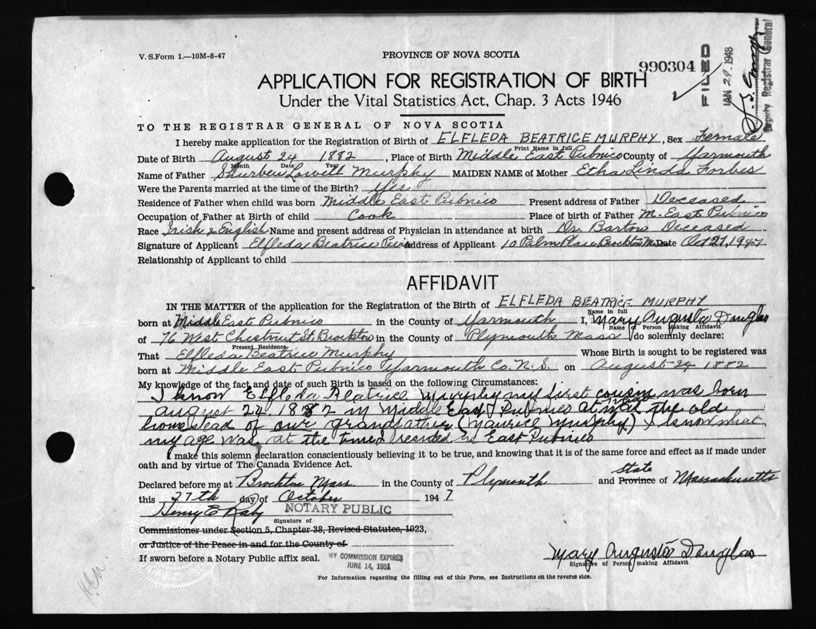 V. S. Form 1.—10M-8-47
PROVINCE OF NOVA SCOTIA
990304
FILED
JAN 29 1948
Deputy Registrar General
APPLICATION FOR REGISTRATION OF BIRTH
Under the Vital Statistics Act, Chap. 3 Acts 1946
TO THE REGISTRAR GENERAL OF NOVA SCOTIA
I hereby make application for the Registration of Birth of ELFLEDA BEATRICE MURPHY, Sex Female
Print Name in full
Date of Birth August 24 1882, Place of Birth Middle East Pubnico County of Yarmouth
Month Date Year
Name of Father Lovitt Murphy MAIDEN NAME of Mother Etha Linda Forbes
Were the Parents married at the time of the Birth? Yes
Residence of Father when child was born Middle East Pubnico Present address of Father Deceased
Occupation of Father at Birth of child Cook Place of birth of Father M. East Pubnico
Race Irish & English Name and present address of Physician in attendance at birth Dr. Barton Deceased
Signature of Applicant Elfleda Beatrice Address of Applicant 10 Palm Place Brockton Mass Date Oct 27, 1947
Relationship of Applicant to child
AFFIDAVIT
IN THE MATTER of the application for the Registration of the Birth of ELFLEDA BEATRICE MURPHY
Name in full
born at Middle East Pubnico in the County of Yarmouth I, Mary Augusta Douglas
Name of Person Making Affidavit
of 76 West Chestnut St Brockton in the County of Plymouth Mass do solemnly declare:
Present Residence
That Elfleda Beatrice Murphy Whose Birth is sought to be registered was
born at Middle East Pubnico Yarmouth Co. N.S. on August 24 1882
My knowledge of the fact and date of such Birth is based on the following Circumstances:
I know Elfleda Beatrice Murphy my first cousin was born
August 24 1882 in Middle East Pubnico at the old
homestead of our grandfather (Maurice Murphy) I know what
my age was at the time I resided in East Pubnico
I make this solemn declaration conscientiously believing it to be true, and knowing that it is of the same force and effect as if made under
oath and by virtue of The Canada Evidence Act.
State
Declared before me at Brockton Mass in the County of Plymouth and Province of Massachusetts
this 27th day of October 1947
Henry E NOTARY PUBLIC
Signature of
Commissioner under Section 5, Chapter 38, Revised Statutes, 1923,
or Justice of the Peace in and for the County of
If sworn before a Notary Public affix seal. MY COMMISSION EXPIRES
JUNE 14, 1951
Mary Augusta Douglas
Signature of Person making Affidavit
For Information regarding the filling out of this Form, see Instructions on the reverse side.